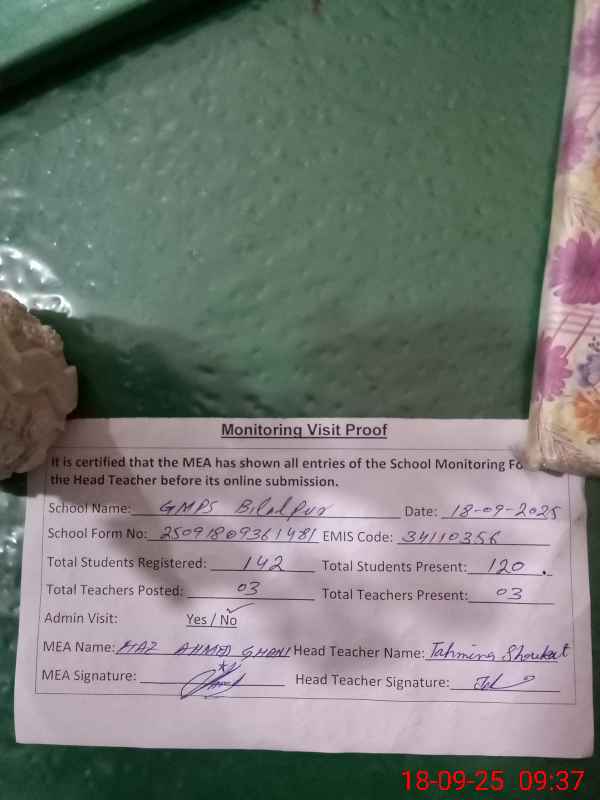 Monitoring Visit Proof
It is certified that the MEA has shown all entries of the School Monitoring Fo
the Head Teacher before its online submission.
School Name: GMPS Bilalpur Date: 18-09-2025
School Form No: 25091809361481 EMIS Code: 34110356
Total Students Registered: 142 Total Students Present: 120
Total Teachers Posted: 03 Total Teachers Present: 03
Admin Visit: Yes / No
MEA Name: AHMED GHANI Head Teacher Name: Tahmina Shoukat
MEA Signature: Head Teacher Signature:
18-09-25 09:37